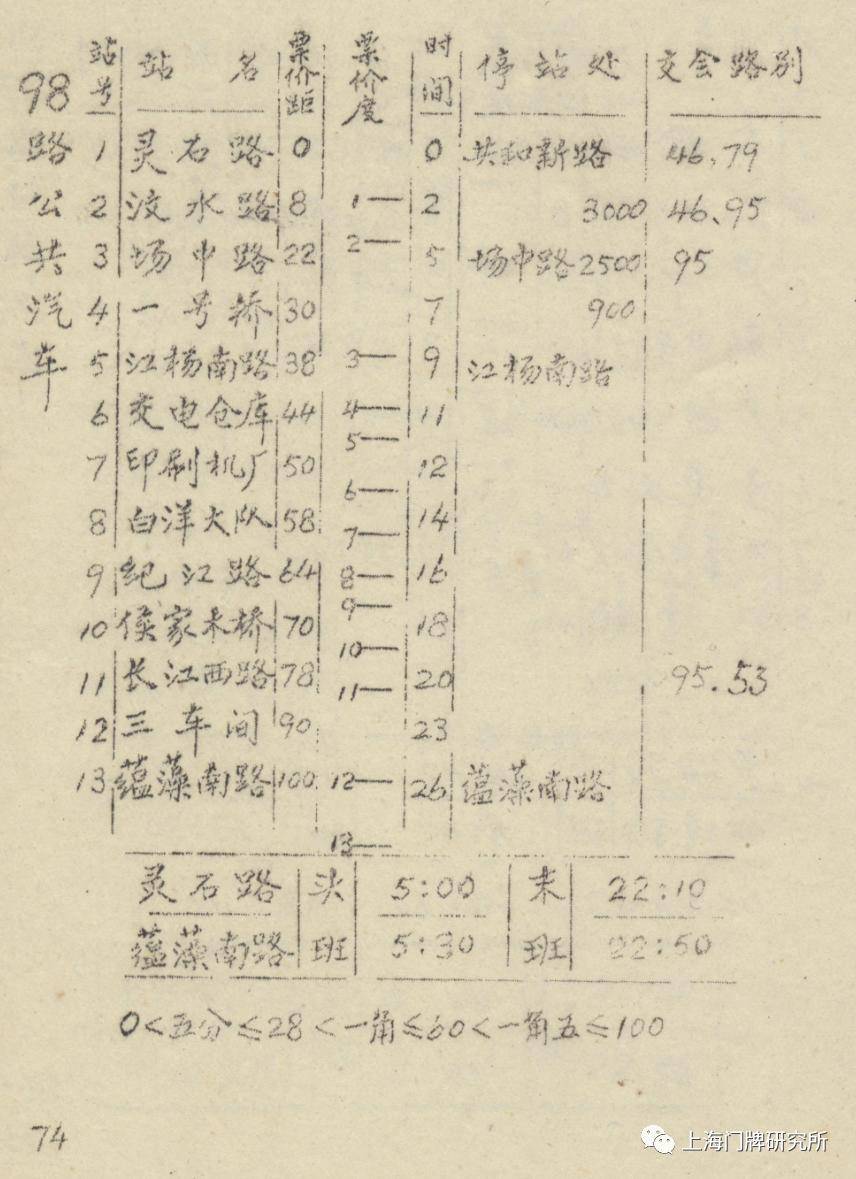 98路公共汽车
站号 站名 票价距 票价度 时间 停站处 交会路别
1 灵石路 0 0 共和新路 46、79
2 汶水路 8 1— 2 3000 46、95
3 场中路 22 2— 5 场中路2500 95
4 一号桥 30 7 900
5 江杨南路 38 3— 9 江杨南路
6 交电仓库 44 4— 11
5—
7 印刷机厂 50 12
6—
8 白洋大队 58 14
7—
9 纪江路 64 8— 16
9—
10 侯家木桥 70 18
10—
11 长江西路 78 11— 20 95.53
12 三车间 90 23
13 蕴藻南路 100 12— 26 蕴藻南路
13—
灵石路 头班 5:00 末班 22:10
蕴藻南路 5:30 22:50
0<五分≤28<一角≤60<一角五≤100
74
上海门牌研究所